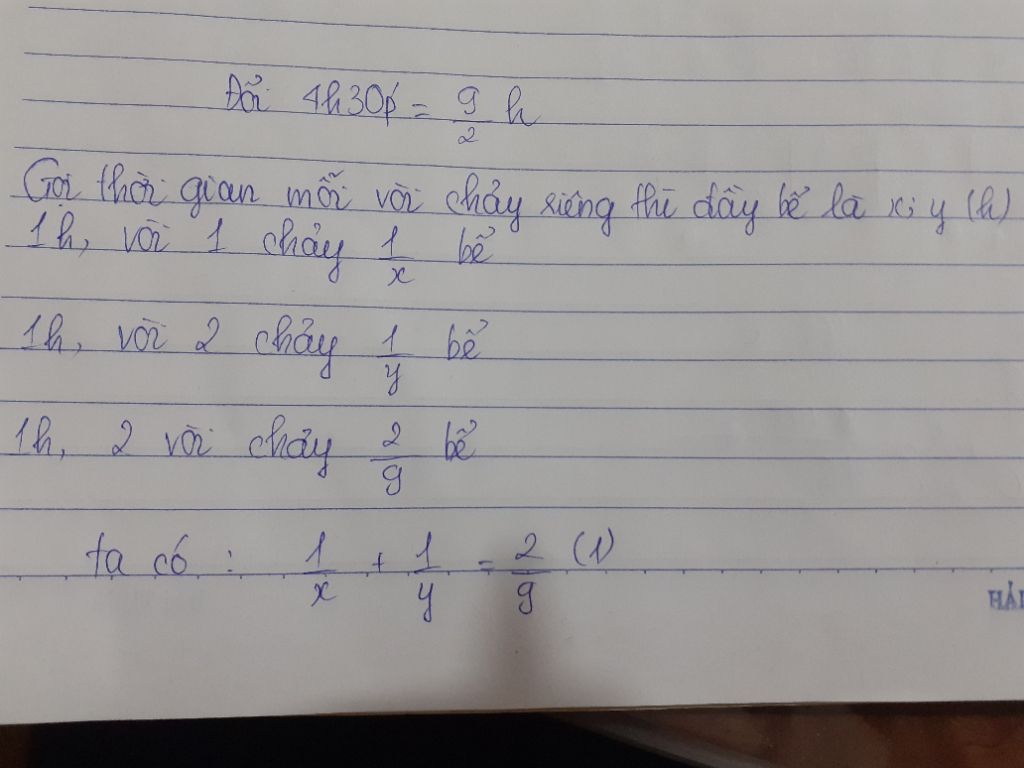 Đổi 4h30p = 9/2 h
Gọi thời gian mỗi vòi chảy riêng thì đầy bể là x; y (h)
1h, vòi 1 chảy 1/x bể
1h, vòi 2 chảy 1/y bể
1h, 2 vòi chảy 2/9 bể
ta có : 1/x + 1/y = 2/9 (1)